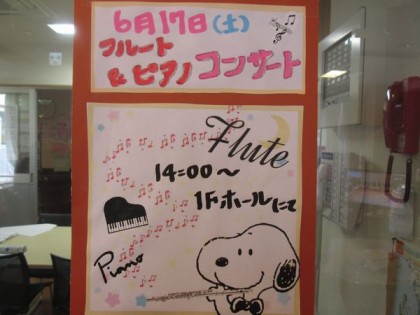 6月17日(土)
フルート
& ピアノ コンサート
Flute
14:00〜
1Fホールにて
Piano